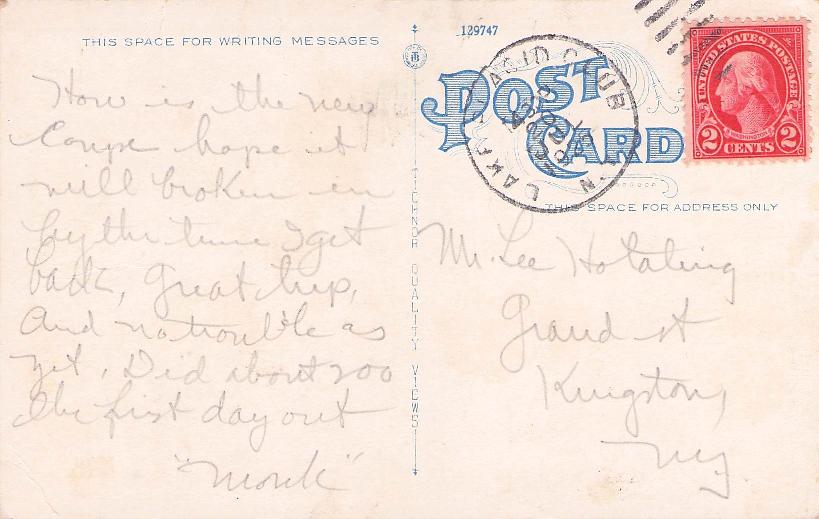 THIS SPACE FOR WRITING MESSAGES
How is the new
Coupe hope it
will broken in
by the time I get
back, Great trip,
And no trouble as
yet, Did about 200
the first day out
"Monk"
TICHNOR QUALITY VIEWS
129747
POST
CARD
LAKE PLACID CLUB
N.Y.
UNITED STATES POSTAGE
WASHINGTON
2 CENTS 2
THIS SPACE FOR ADDRESS ONLY
Mr. Lee Hotaling
Grand st
Kingston,
NY